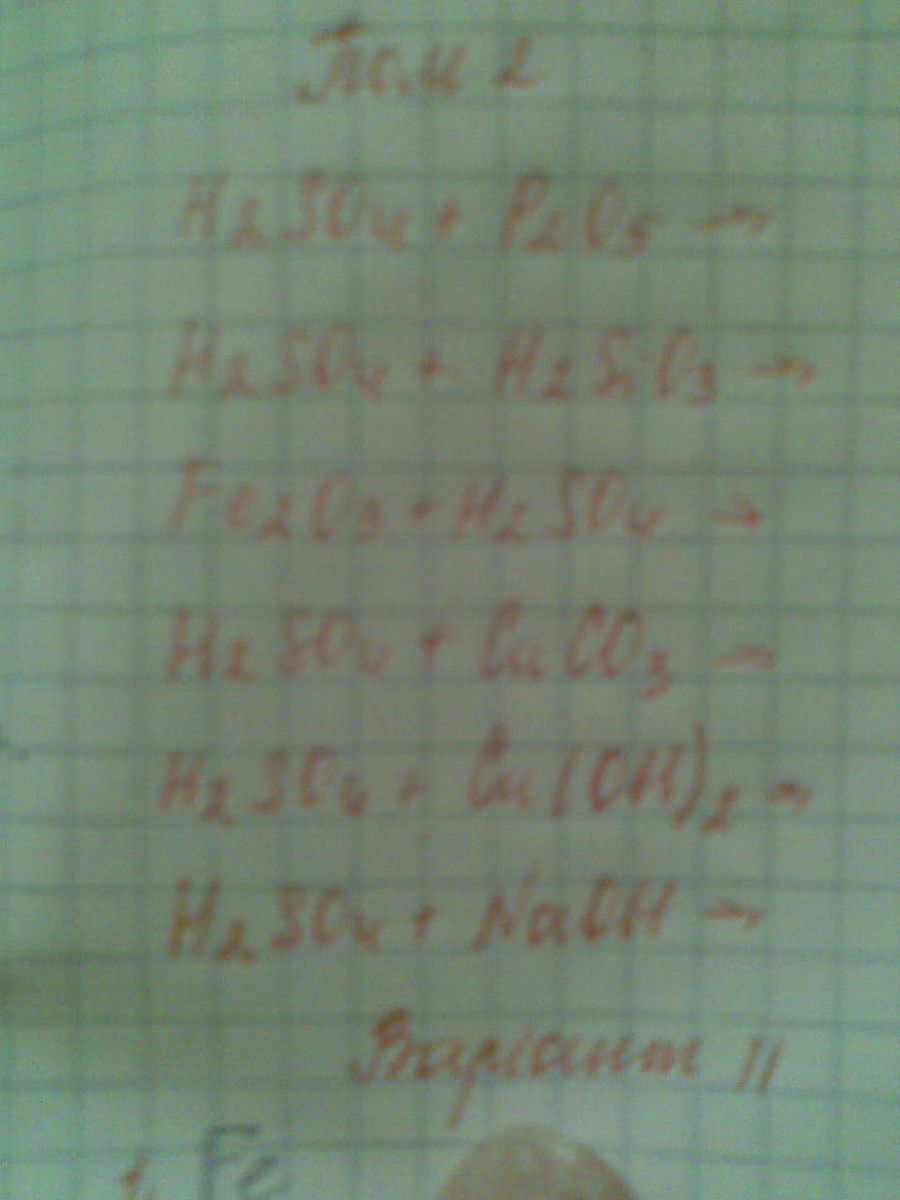 H₂SO₄ + P₂O₅ →
H₂SO₄ + H₂SiO₃ →
Fe₂O₃ + H₂SO₄ →
H₂SO₄ + CuCO₃ →
H₂SO₄ + Cu(OH)₂ →
H₂SO₄ + NaOH →
Варіант II
1. Fe